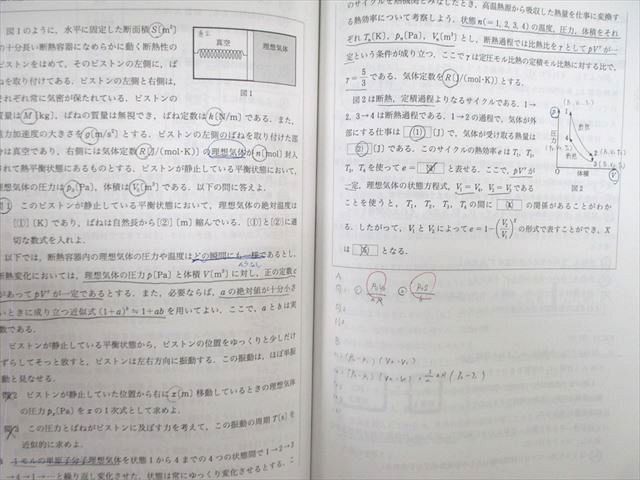 図1のように，水平に固定した断面積S[m²]
の十分長い断熱容器になめらかに動く断熱性の
ピストンをはめて，そのピストンの左側に，ば
ねを取り付けてある。ピストンの左側と右側は，
それぞれ常に気密が保たれている。ピストンの
質量はM[kg]，ばねの質量は無視でき，ばね定数はk[N/m]である。また，
重力加速度の大きさをg[m/s²]とする。ピストンの左側のばねを取り付けた部
は真空であり，右側には気体定数R[J/(mol·K)]の理想気体がn[mol]封入
されて熱平衡状態にあるものとする。ピストンが静止している平衡状態において，
理想気体の圧力はp₀[Pa]，体積はV₀[m³]である。以下の問に答えよ。
1 ピストンが静止している平衡状態において，理想気体の絶対温度は
[①][K]であり，ばねは自然長から[②][m]縮んでいる。[①]と[②]に適
切な数式を入れよ。
以下では，断熱容器内の理想気体の圧力や温度はどの瞬間にも一様であるとし，
断熱変化においては，理想気体の圧力p[Pa]と体積V[m³]に対し，正の定数c
があってpVᶜが一定であるとする。また，必要ならば，aの絶対値が十分小さ
いときに成り立つ近似式(1+a)ᵇ≒1+abを用いてよい。ここで，aときは実
数である。
ピストンが静止している平衡状態から，ピストンの位置をゆっくりと少しだけ
ずらしてそっと放すと，ピストンは左右方向に振動する。この振動は，ほぼ単振
動と見なせる。
2 ピストンが静止していた位置から右にx[m]移動しているときの理想気体
の圧力pₓ[Pa]をxの1次式として求めよ。
3 この圧力とばねがピストンに及ぼす力を考えて，この振動の周期T[s]を
近似的に求めよ。
1モルの単原子分子理想気体を状態1から4までの4つの状態間で1→2→3
→4→1→…と繰り返し変化させた。状態は常にゆっくり変化させるとする。こ
真空
理想気体
図1
のサイクルを熱機関とみなしたとき，高温熱源から吸収した熱量を仕事に変換す
る熱効率について考察しよう。状態n(=1, 2, 3, 4)の温度，圧力，体積をそれ
ぞれTₙ[K]，pₙ[Pa]，Vₙ[m³]とし，断熱過程では比熱比をγとしてpVᵞが一
定という条件が成り立つ。ここでγは定圧モル比熱の定積モル比熱に対する比で，
γ=5/3である。気体定数をR[J/(mol·K)]とする。
図2は断熱，定積過程よりなるサイクルである。1→
2，3→4は断熱過程である。1→2の過程で，気体が外
部にする仕事は[(1)][J]で，気体が受け取る熱量は
[(2)][J]である。このサイクルの熱効率eはT₁，T₂，
T₃，T₄を使ってe=[(3)]と表せる。ここで，pVᵞが
一定，理想気体の状態方程式，V₁=V₄，V₂=V₃である
ことを使うと，T₁，T₂，T₃，T₄の間に[(4)]の関係があることがわか
る。したがって，V₁とV₂によってe=1-(V₁/V₂)ˣの形式で表すことができ，X
は[(5)]となる。
圧力
断熱
断熱
体積
図2
A
① p₀V₀/nR ② p₀S/k
B